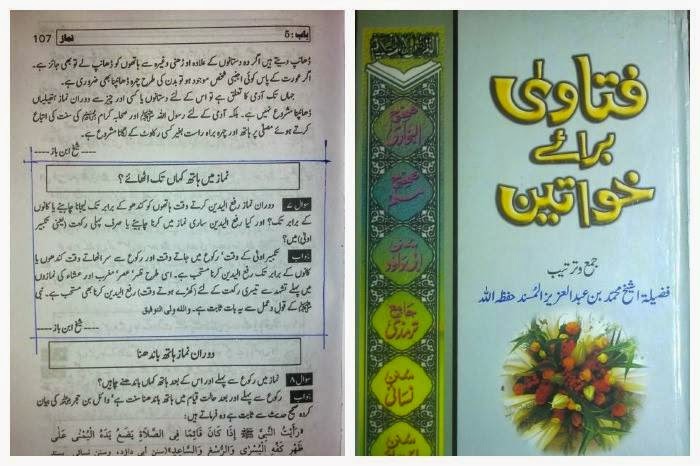 باب: 5
نماز
107
ڈھانپ دیتے ہیں اگر وہ دستانوں کے علاوہ اوڑھنی وغیرہ سے ہاتھوں کو ڈھانپ لے تو بھی جائز ہے۔
اگر عورت کے پاس کوئی اجنبی شخص موجود ہو تو بدن کی طرح چہرہ ڈھانپنا بھی ضروری ہے۔
جہاں تک آدمی کا تعلق ہے تو اس کے لئے دستانوں یا کسی اور چیز سے دوران نماز ہتھیلیاں
ڈھانپنا مشروع نہیں ہے۔ بلکہ آدمی کے لئے رسول اللہ ﷺ اور صحابہ کرام کی سنت کی اتباع
کرتے ہوئے مصلیٰ پر ہاتھ اور چہرہ براہ راست بغیر کسی رکاوٹ کے لگانا مشروع ہے۔
---- شیخ ابن باز ----
نماز میں ہاتھ کہاں تک اٹھائے؟
سوال ۷ دوران نماز رفع الیدین کرتے وقت ہاتھوں کو کندھوں کے برابر تک لیجانا چاہئے یا کانوں
کے برابر تک؟ اور کیا رفع الیدین ساری نماز میں کرنا چاہئے یا صرف پہلی رکعت (یعنی تکبیر
اولیٰ) میں؟
جواب تکبیر اولیٰ کے وقت' رکوع میں جاتے وقت اور رکوع سے سر اٹھاتے وقت کندھوں یا
کانوں کے برابر تک رفع الیدین کرنا مستحب ہے۔ اسی طرح ظہر' عصر' مغرب اور عشاء کی نمازوں
میں پہلے تشہد سے تیسری رکعت کے لئے (کھڑے ہوتے وقت) رفع الیدین کرنا بھی مستحب ہے۔ نبی
ﷺ کے قول و عمل سے یہ بات ثابت ہے۔ واللہ ولی التوفیق
---- شیخ ابن باز ----
دوران نماز ہاتھ باندھنا
سوال ۸ نماز میں رکوع سے پہلے اور اس کے بعد ہاتھ کہاں باندھنے چاہئیں؟
جواب رکوع سے پہلے اور بعد حالت قیام میں ہاتھ باندھنا سنت ہے' وائل بن حجر کی بیان
کردہ صحیح حدیث سے ثابت ہے وہ فرماتے ہیں:
«رَأَيْتُ النَّبِيَّ ﷺ إِذَا كَانَ قَائِمًا فِي الصَّلَاةِ يَضَعُ يَدَهُ الْيُمْنَى عَلَى
ظَهْرِ كَفِّهِ الْيُسْرَى وَالرُّسْغِ وَالسَّاعِدِ» (سنن أبي داود، وسنن نسائي
صحیح البخاری
صحیح مسلم
سنن ابی داوٗد
جامع ترمذی
سنن نسائی
سنن
فتاویٰ
برائے
خواتین
جمع و ترتیب
فضیلۃ الشیخ محمد بن عبدالعزیز المسند حفظہ اللہ